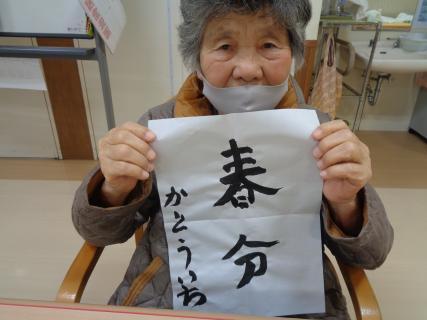 春分
かとういち